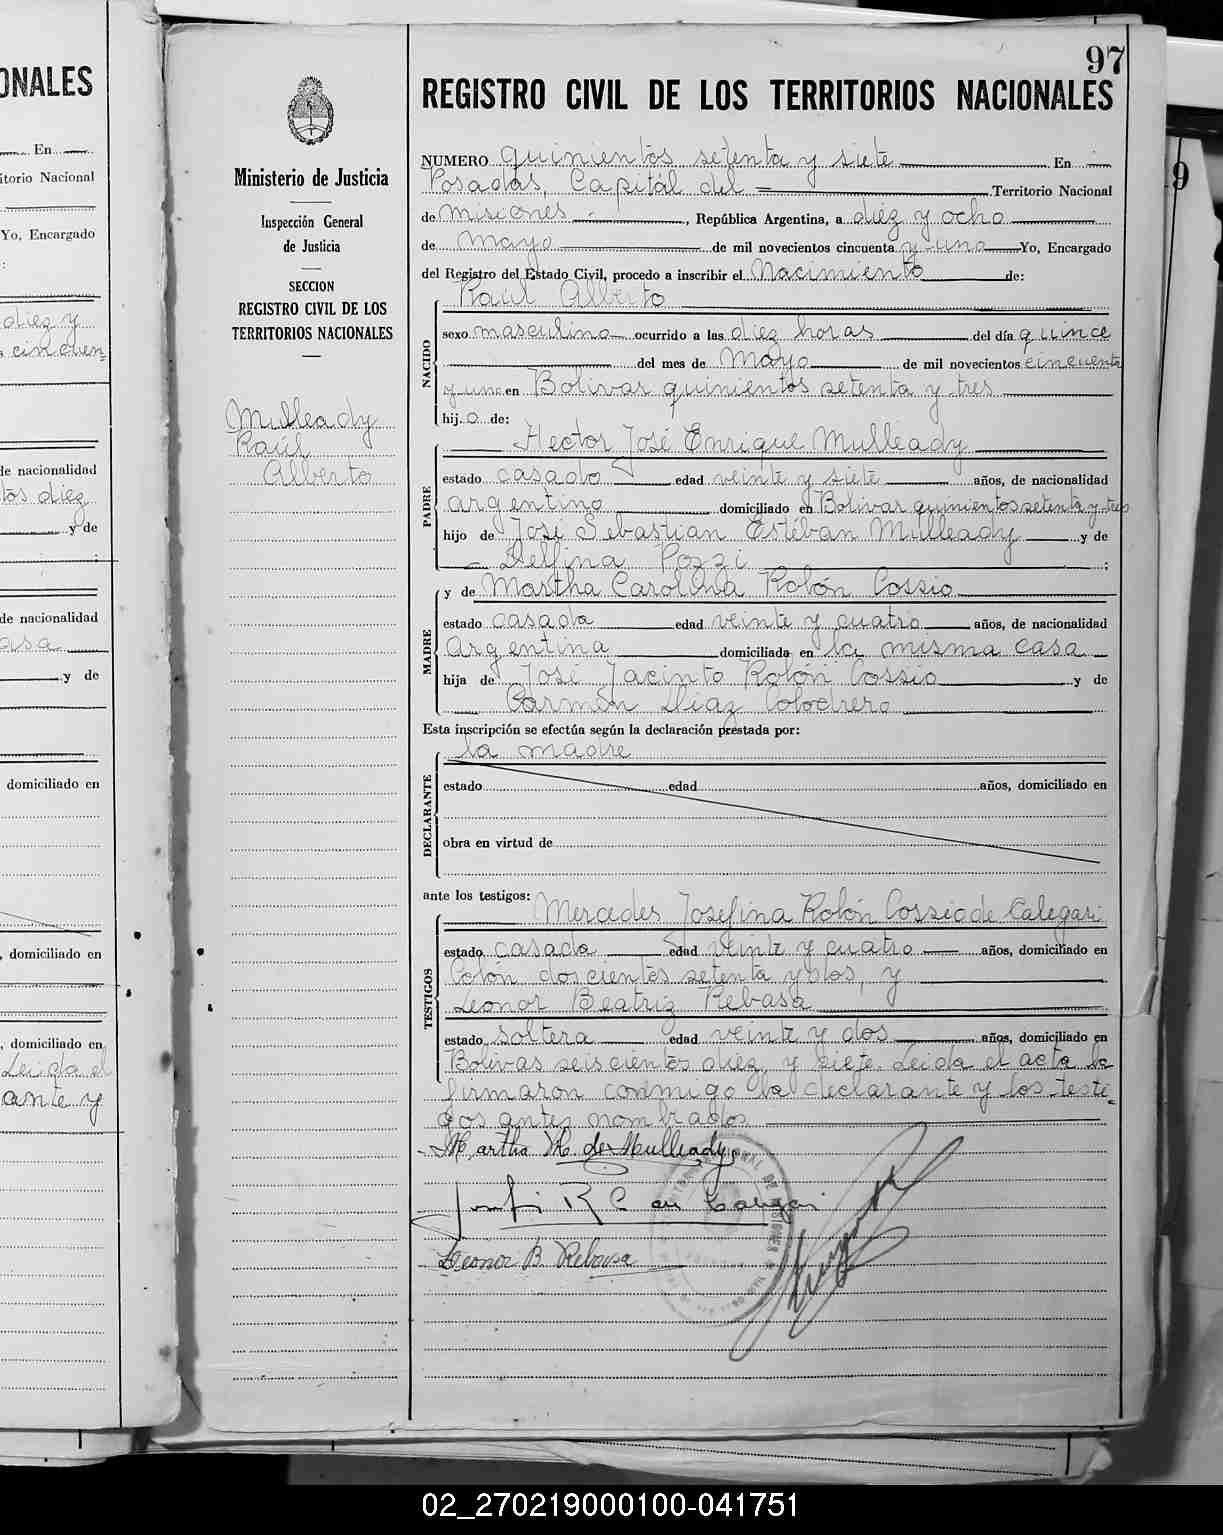 ONALES
En
itorio Nacional
Yo, Encargado
:
diez y
s cincuen=
de nacionalidad
tos diez
y de
de nacionalidad
asa
y de
domiciliado en
, domiciliado en
, domiciliado en
Leida el
ante y
9
97
Ministerio de Justicia
Inspección General
de Justicia
SECCION
REGISTRO CIVIL DE LOS
TERRITORIOS NACIONALES
Mulleady
Raúl
Alberto
REGISTRO CIVIL DE LOS TERRITORIOS NACIONALES
NUMERO quinientos setenta y siete En
Posadas, Capital del = Territorio Nacional
de Misiones , República Argentina, a diez y ocho
de Mayo de mil novecientos cincuenta y uno Yo, Encargado
del Registro del Estado Civil, procedo a inscribir el Nacimiento de:
NACIDO
Raúl Alberto
sexo masculino ocurrido a las diez horas del día quince
del mes de Mayo de mil novecientos cincuenta
y uno en Bolivar quinientos setenta y tres
hij o de:
PADRE
Hector José Enrique Mulleady
estado casado edad veinte y siete años, de nacionalidad
argentino domiciliado en Bolivar quinientos setenta y tres
hijo de José Sebastian Estéban Mulleady y de
Delfina Pozzi ;
MADRE
y de Martha Carolina Rolón Cossio
estado casada edad veinte y cuatro años, de nacionalidad
Argentina domiciliada en la misma casa
hija de José Jacinto Rolón Cossio y de
Carmen Diaz Colodrero
Esta inscripción se efectúa según la declaración prestada por:
DECLARANTE
la madre
estado edad años, domiciliado en
obra en virtud de
ante los testigos:
TESTIGOS
Mercedes Josefina Rolón Cossio de Calegari
estado casada edad veinte y cuatro años, domiciliado en
Colón doscientos setenta y dos, y
Leonor Beatriz Rebasa
estado soltera edad veinte y dos años, domiciliado en
Bolivar seiscientos diez y siete. Leida el acta la
firmaron conmigo la declarante y los testi=
gos antes nombrados
Martha R. de Mulleady
R C de Calegari
Leonor B. Rebasa
02_270219000100-041751